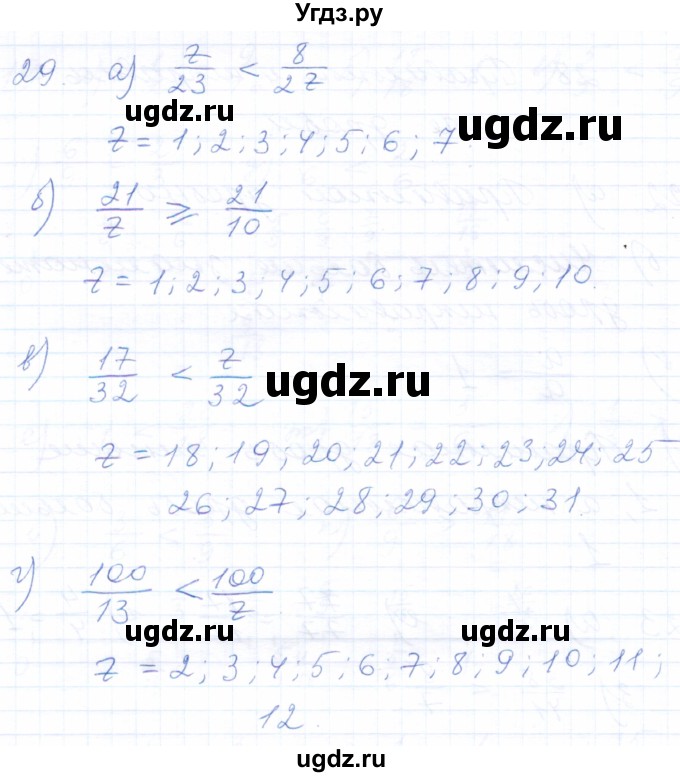 Угдз.ру
29. а) z/23 < 8/2z
z = 1; 2; 3; 4; 5; 6; 7.
б) 21/z ⩾ 21/10
z = 1; 2; 3; 4; 5; 6; 7; 8; 9; 10.
в) 17/32 < z/32
z = 18; 19; 20; 21; 22; 23; 24; 25
26; 27; 28; 29; 30; 31.
г) 100/13 < 100/z
z = 2; 3; 4; 5; 6; 7; 8; 9; 10; 11;
12.
ugdz.ru
ugdz.ru
ugdz.ru
ugdz.ru
ugdz.ru
ugdz.ru
ugdz.ru